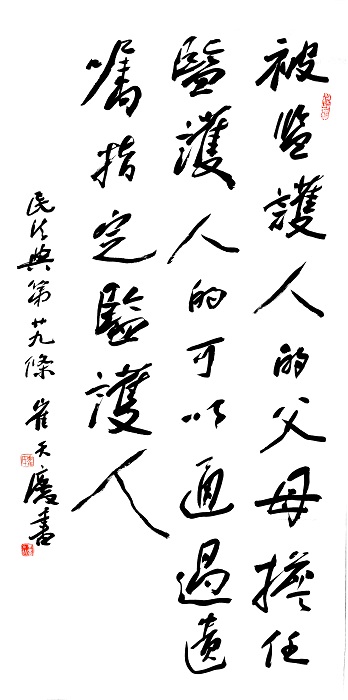 被监護人的父母擔任
監護人的可以通過遗
嘱指定監護人
民法典第廿九條 崔天慶書